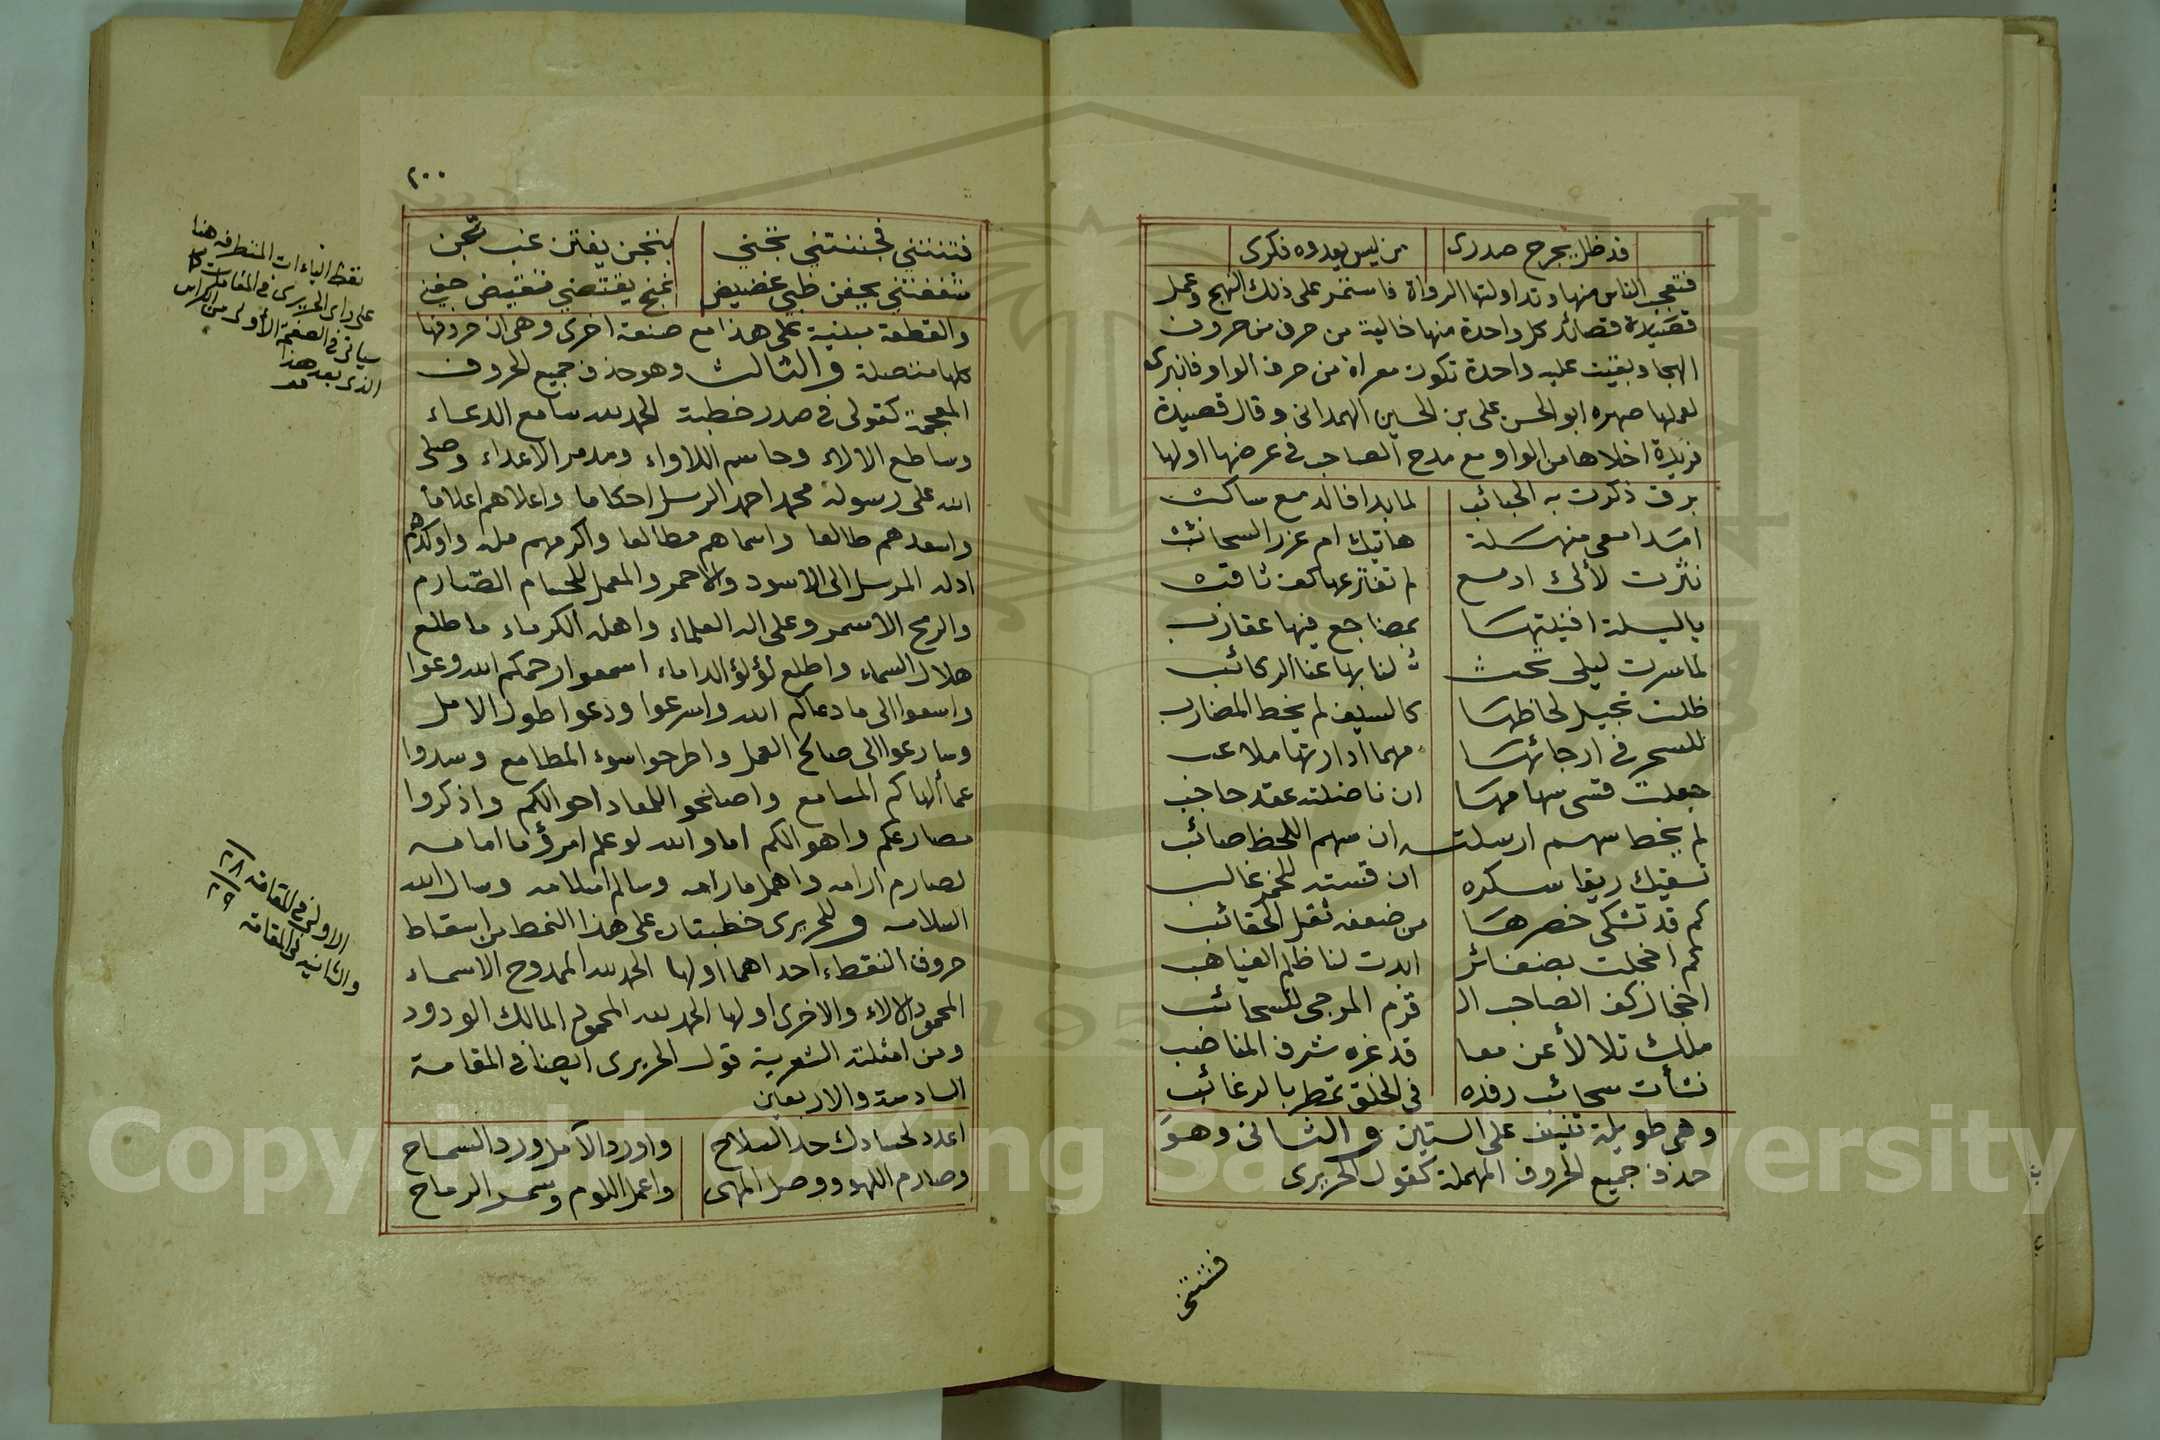 قد ظل يجرح صدرى من ليس يعدوه فكرى
فتعجب الناس منها وتداولتها الرواة فاستمر على ذلك النهج وعمل
قصيدة قصائد كل واحدة منها خالية من حرف من حروف
الهجا وبقيت عليه واحدة تكون معراة من حرف الواو فانبرى
لعملها صهره ابو الحسن على بن الحسين الهمدانى وقال قصيدة
فريدة اخلاها من الواو مع مدح الصاحب فى عرضها اولها
برق ذكرت به الحبائب لما بدا فالدمع ساكب
امدامعى منهلة هاتيك ام غزر السحائب
نثرت لألئ ادمع لم تفترعها كف ثاقب
يا ليلة افنيتها بمضاجع فيها عقارب
لما سرت ليلى تخب لنا بها عنا الركائب
ظلت تجيل لحاظها كالسيف لم يخط المضارب
للسحر فى ارجائها مهما ادارتها ملاعب
جعلت قسى سهامها ان ناضلته عقد حاجب
لم يخط سهم ارسلته ان سهم اللحظ صائب
تسقيك ريقا سكره ان قسته للخمر غالب
كم قد تشكى خصرها من ضعفه ثقل الحقائب
كم اخجلت بضفائر ابدت لنا ظلم الغياهب
اخجال كف الصاحب ال قرم المرجى للسحائب
ملك تلالأ عن معا قد غره شرف المناصب
نشأت سحائب رفده فى الخلق تمطر بالرغائب
وهى طويلة تنيف على الستين والثانى وهو
حذف جميع الحروف المهملة كقول الحريرى
فتنتنى
٢٠٠
فتنتنى فجننتنى تجنى بتجن يفتن غب تجن
شغفتنى بجفن ظبى غضيض غنج يقتضى تغيض جفنى
والقطعة مبنية على هذا مع صنعة اخرى وهى ان حروفها
كلها متصلة والثالث وهو حذف جميع الحروف
المعجمة كقولى فى صدر خطبة الحمد لله سامع الدعاء
وساطع الالاء وحاسم اللاواء ومدمر الاعداء وصلى
الله على رسوله محمد احمد الرسل احكاما واعلاهم اعلاما
واسعدهم طالعا واسماهم مطالعا واكرمهم مله واوكدهم
ادله المرسل الى الاسود والاحمر والمعمل للحسام الصارم
والرمح الاسمر وعلى اله العلماء واهله الكرماء ما طلع
هلال السماء واطلع لؤلؤ الداماء اسمعوا رحمكم الله وعوا
واسعوا الى ما دعاكم الله واسرعوا ودعوا طول الامل
وسارعوا الى صالح العمل واطرحوا سوء المطامع وسدوا
عما ألهاكم المسامع واصلحوا للمعاد احوالكم واذكروا
مصارعكم واهوالكم اما والله لو علم امرؤ ما امامه
لصارم ارامه واهمل مرامه وسالم اسلامه وسال الله
السلامه وللحريرى خطبتان على هذا النمط من اسقاط
حروف النقط احداهما اولها الحمد لله الممدوح الاسماء
المحمود الالاء والاخرى اولها الحمد لله المحمود المالك الودود
ومن امثلته الشعرية قول الحريرى ايضا فى المقامة
السادسة والاربعين
اعدد لحسادك حد السلاح واورد الآمل ورد السماح
وصارم اللهو ووصل المهى واعمل اللوم وسمر الرماح
نقط الياءات المتطرفه هنا
على راى الحريرى فى المقامات كما
سياتى فى الصفحة الاولى من الكراس
الذى بعد هذا
الاولى فى المقامة ٢٨
والثانيه فى المقامة ٢٩
Copyright © King Saud University
1957